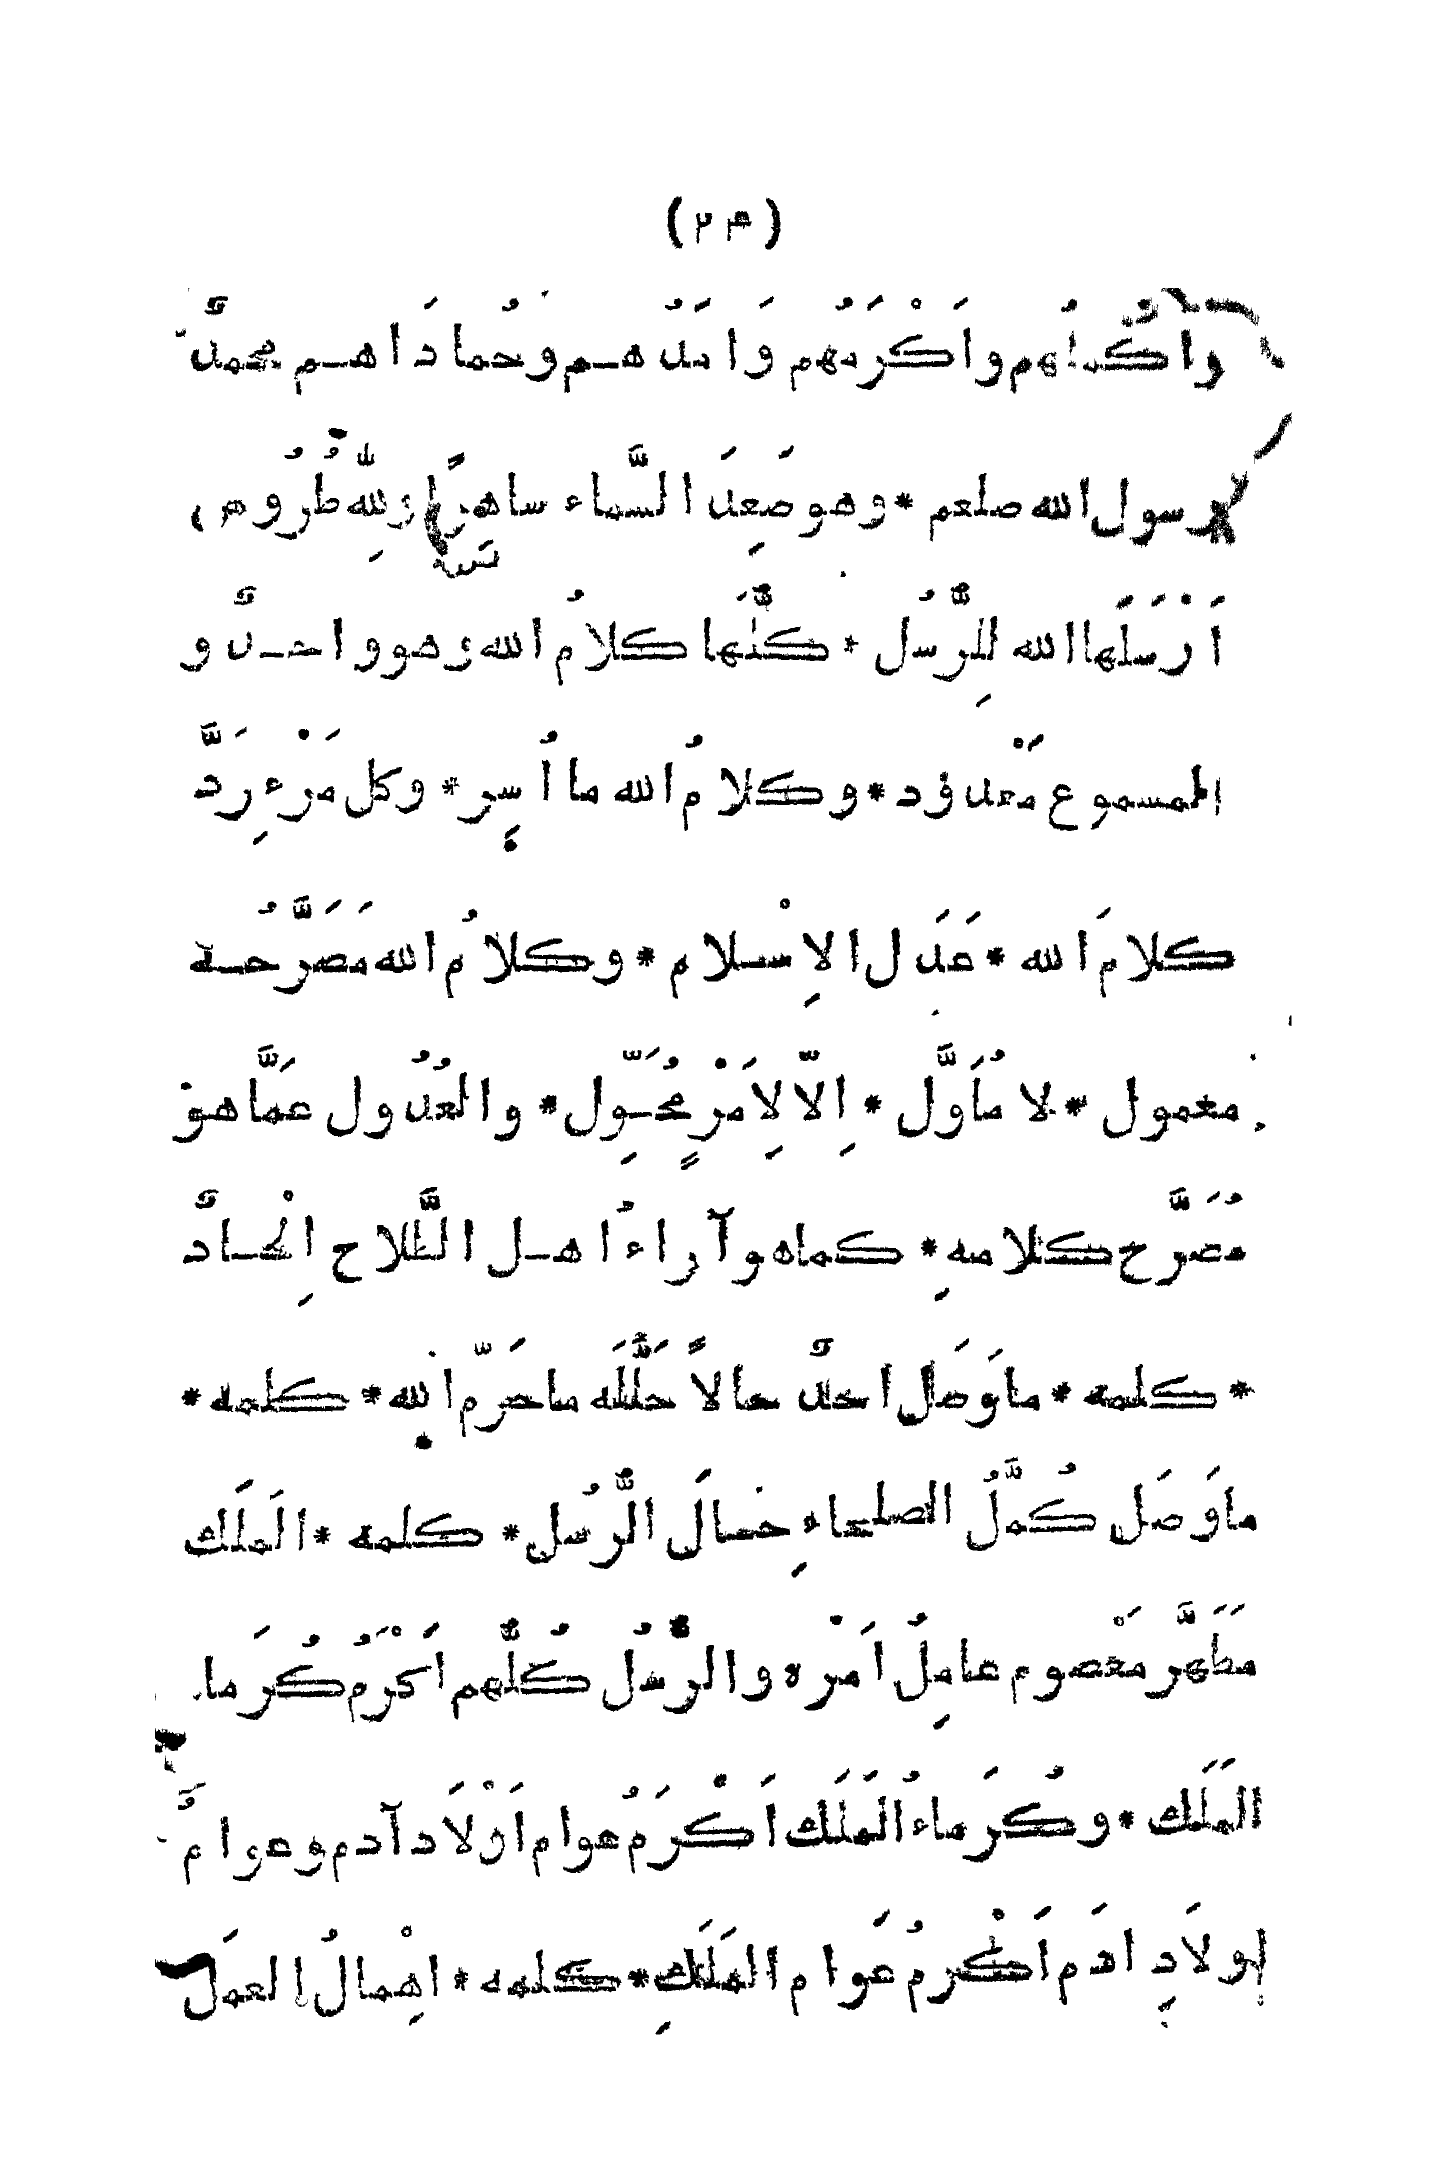 (٢٣)
واَكْمَلُهم واَكْرَمُهم وَاَمَدُهـم وحُمادَاهـم محمدٌ
رسول الله صلعم * وهو صَعِدَ السَّماء ساهِرًا ولِلّه طُرُوس
اَرْسَلَها الله لِلرُّسل * كلَّها كلامُ الله وهو واحدٌ و
المسموع مَعْدود * وكلامُ الله ما اُسِر * وكل مَرْءٍ رَدَّ
كلامَ الله * عَدَلَ الاِسْلام * وكلامُ الله مصَرَّحـة
معمول * لا مُأَوَّل * اِلّا لِاَمْرٍ مُحَوِّل * والعُدُول عمَّا هو
مُصَرَّح كلامهِ * كماه وآراءُ اهـل الطَّلاح اِلْحـادٌ
* كلمه * ما وَصَل احدٌ حالاً حَلَّلَه ما حَرَّم الله * كلمه *
ما وَصَل كُمَّلُ الصلحاءِ حَالَ الرُّسل * كلمه * المَلَك
مطَهَّر معْصوم عامِلُ اَمْره والرُّسُل كُلُّهم اَكْرَمُ كُرَما
المَلَك * وكُرَماء المَلَك اَكْرَمُ عوام اَوْلَاد آدم وعوامُّ
اولَادِ ادَم اَكْرمُ عَوام المَلَكِ * كلمه * اهْمالُ العمَل